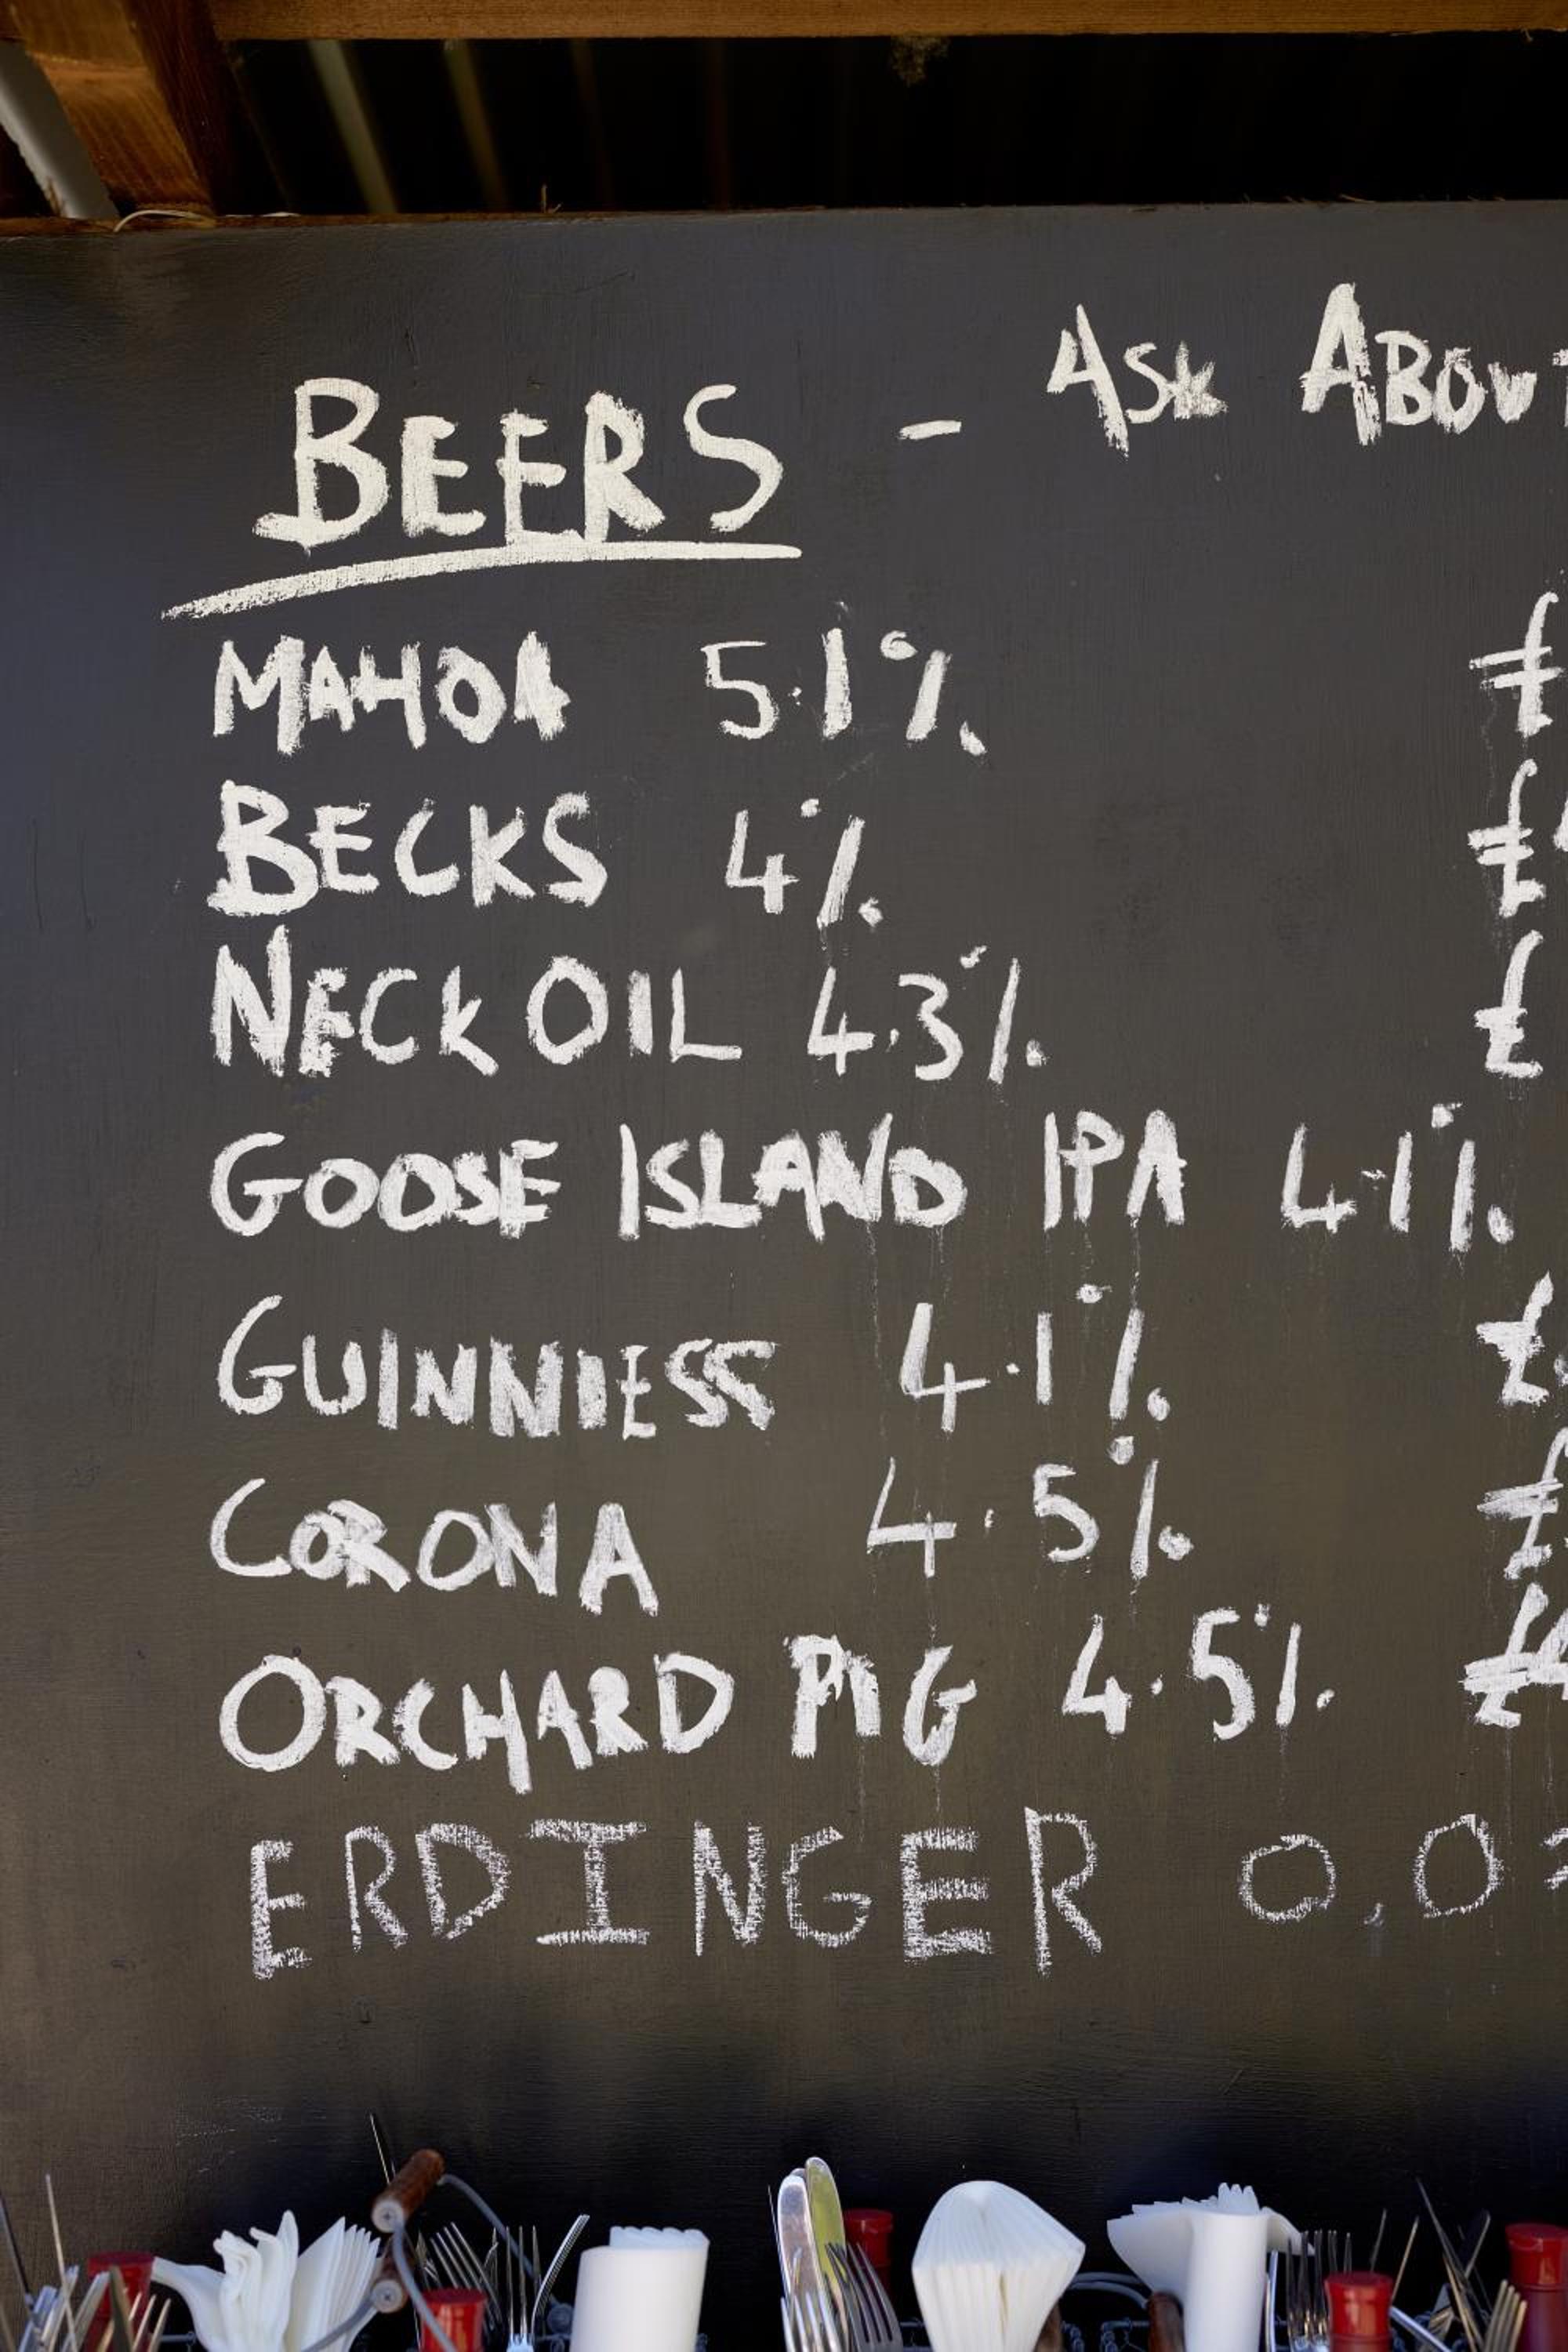 BEERS - ASK ABOUT
MAHOA 5.1% £
BECKS 4% £
NECK OIL 4.3% £
GOOSE ISLAND IPA 4.1%
GUINNIESS 4.1% £
CORONA 4.5% £
ORCHARD PIG 4.5% £4
ERDINGER 0.0%